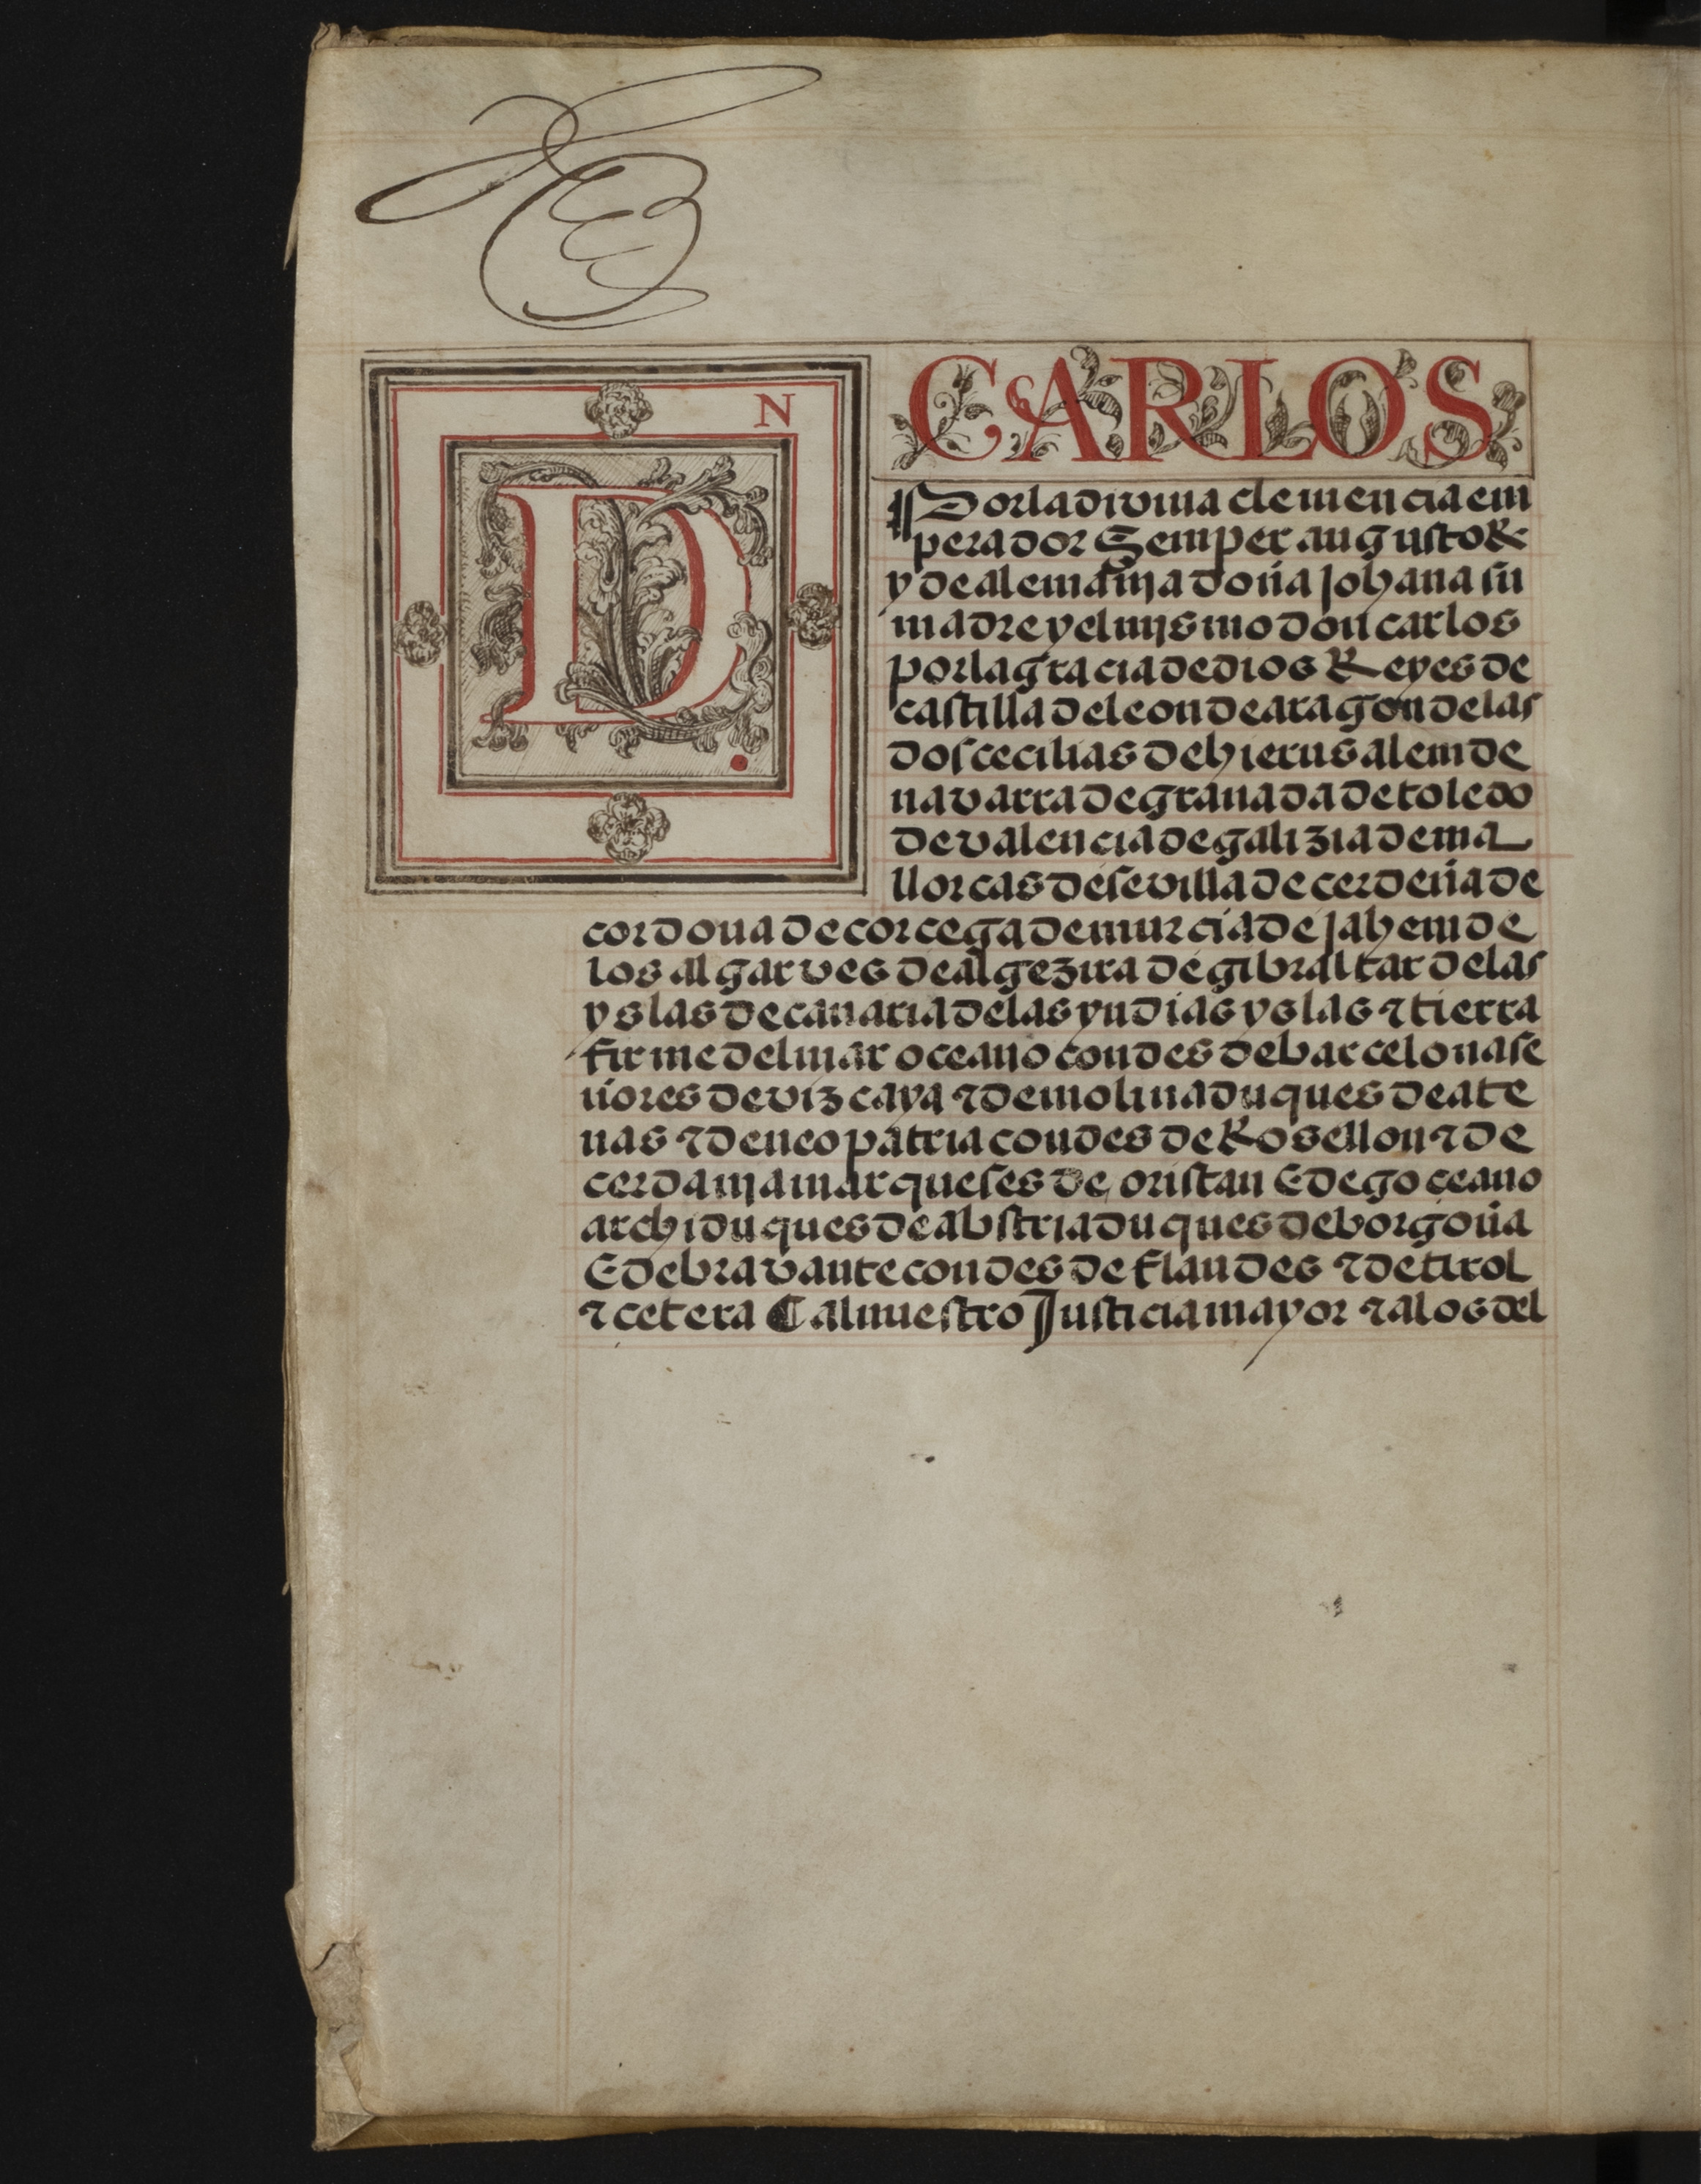 DN CARLOS
Por la divina clemencia em
perador Semper augusto R
y de alemanja doña Johana su
madre y el mjsmo don carlos
por la gracia de dios Reyes de
castilla de leon de aragon de las
dos cecilias de hierusalem de
navarra de granada de toledo
de valencia de galizia de ma
llorcas de sevilla de cerdeña de
cordoua de corcega de murcia de Jahem de
los algarves de algezira de gibraltar de las
yslas de canaria de las yndias yslas ⁊ tierra
firme del mar oceano condes de barcelona se
ñores de vizcaya ⁊ de molina duques de ate
nas ⁊ de neopatria condes de Rosellon ⁊ de
cerdanja marqueses de oristan E de goceano
archiduques de abstria duques de borgoña
E de bravante condes de flandes ⁊ de tirol
⁊ cetera ¶ al nuestro Justicia mayor ⁊ a los del